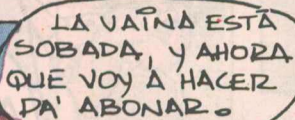 LA VAINA ESTÁ
SOBADA, Y AHORA
QUE VOY A HACER
PA' ABONAR.